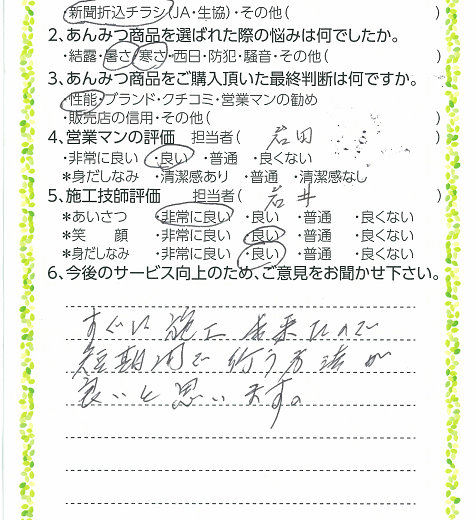 ・新聞折込チラシ(JA・生協)・その他( )
2、あんみつ商品を選ばれた際の悩みは何でしたか。
・結露・暑さ・寒さ・西日・防犯・騒音・その他( )
3、あんみつ商品をご購入頂いた最終判断は何ですか。
・性能・ブランド・クチコミ・営業マンの勧め
・販売店の信用・その他( )
4、営業マンの評価 担当者( 岩田 )
・非常に良い ・良い ・普通 ・良くない
*身だしなみ ・清潔感あり ・普通 ・清潔感なし
5、施工技師評価 担当者( 岩井 )
*あいさつ ・非常に良い ・良い ・普通 ・良くない
*笑 顔 ・非常に良い ・良い ・普通 ・良くない
*身だしなみ ・非常に良い ・良い ・普通 ・良くない
6、今後のサービス向上のため、ご意見をお聞かせ下さい。
すぐに施工出来ないので
短期間で行う方法が
良いと思います。